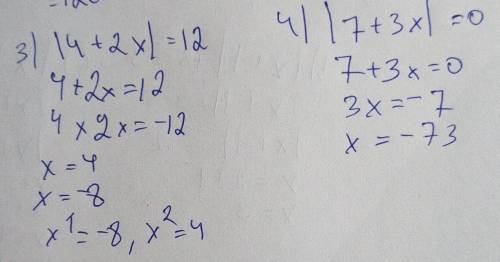 3) |4+2x|=12
4+2x=12
4x2x=-12
x=4
x=-8
x1=-8, x2=4
4) |7+3x|=0
7+3x=0
3x=-7
x=-73